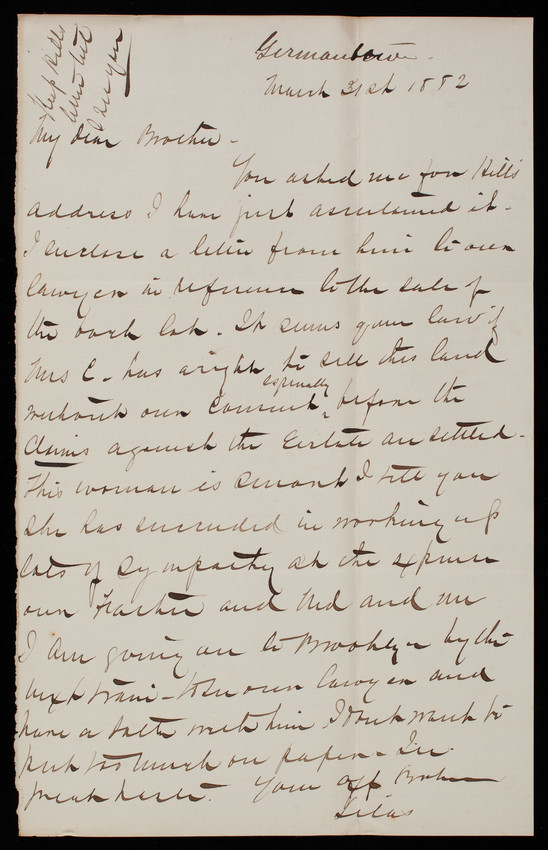 Keep Hills
letter till
I see you
Germantown.
March 31st 1882
My dear Brother -
You asked me for Hill's
address I have just ascertained it -
I enclose a letter from him to our
lawyer in reference to the sale of
the oark Lot. It seems queer law if
Mrs C - has a right to sell this land
without our consent, especially before the
claims against the Estate are settled -
This woman is smart I tell you
she has succeeded in working up
lots of sympathy at the expense
our Father and Ned and me
I am going on to Brooklyn by the
next train - to see our lawyer and
have a talk with him. I dont want to
put too much on paper - In
great haste. Your aff Brother
Silas